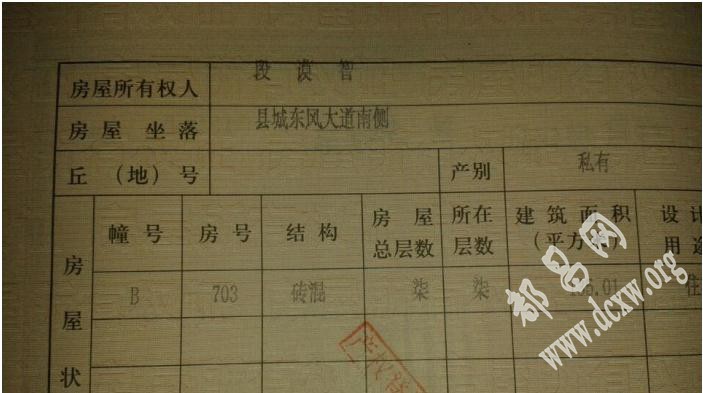 房屋所有权人 段谟智
房屋坐落 县城东风大道南侧
丘（地）号 产别 私有
房屋状
幢号 房号 结构 房屋总层数 所在层数 建筑面积（平方米） 设计用途
B 703 砖混 柒 柒 住
都昌网
www.dcxw.org